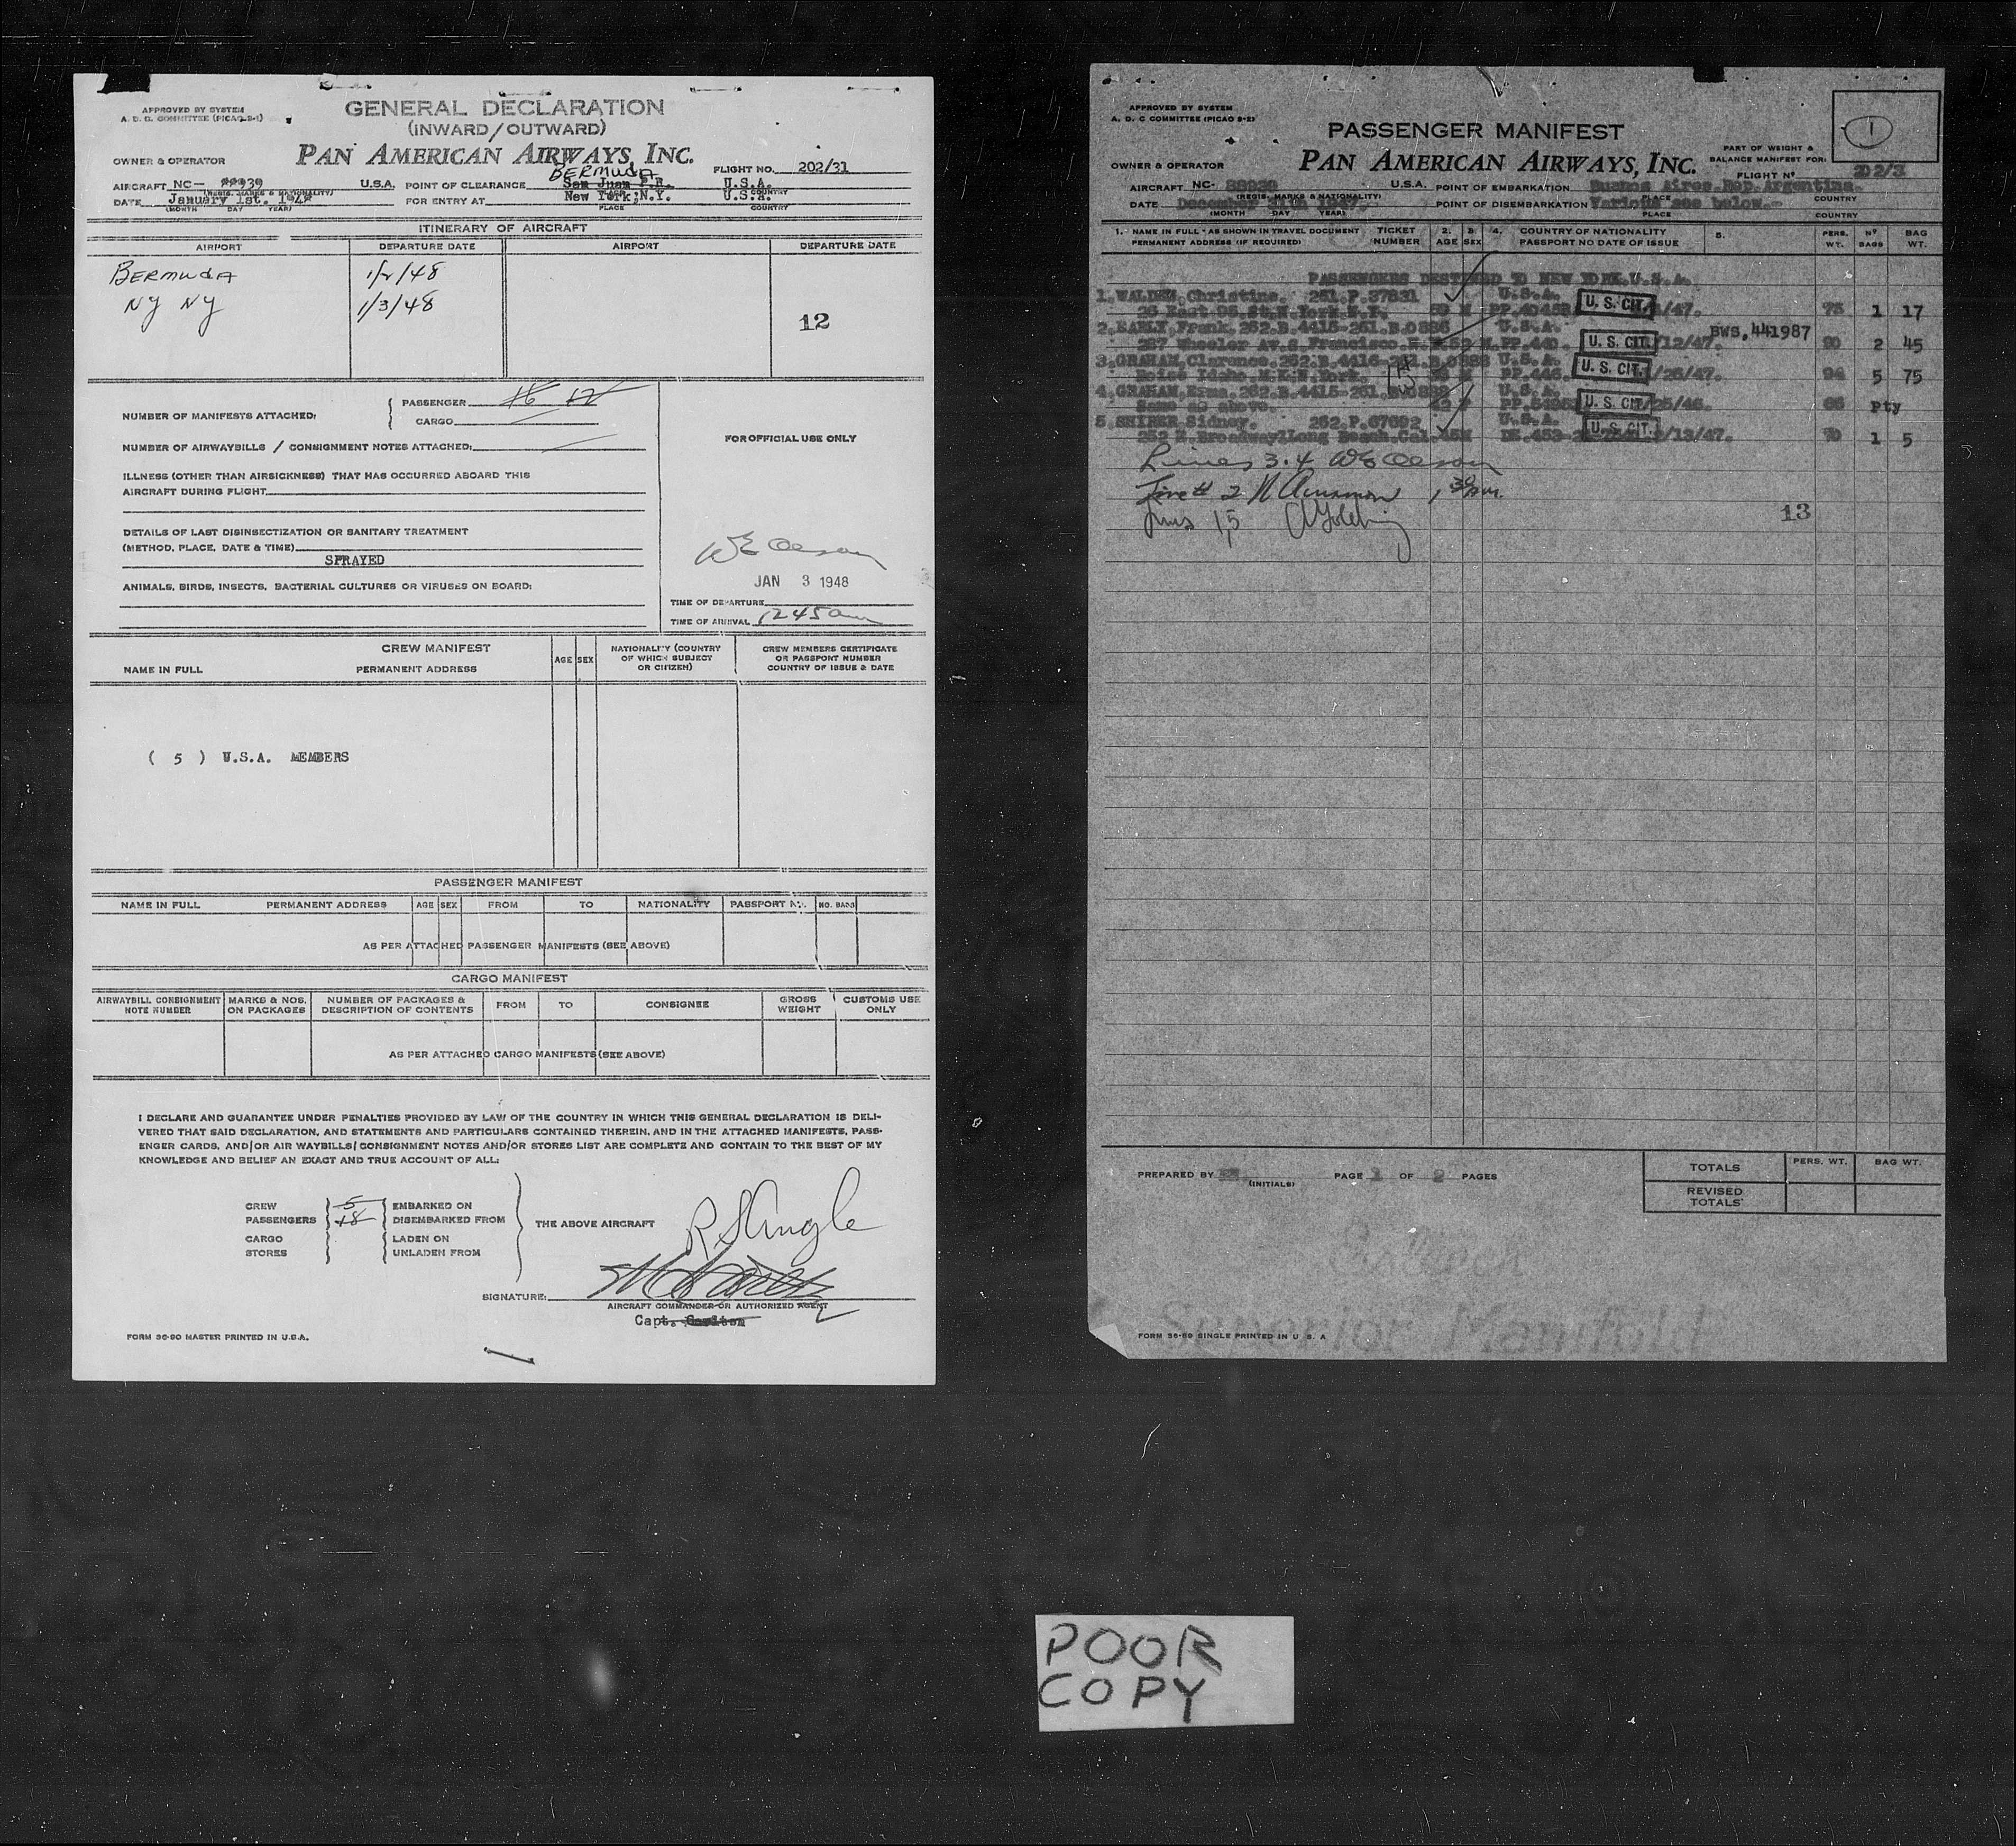 APPROVED BY SYSTEM
A. D. C. COMMITTEE (PICAO 2-1)
GENERAL DECLARATION
(INWARD/OUTWARD)
OWNER & OPERATOR
PAN AMERICAN AIRWAYS, INC.
FLIGHT NO. 202/31
BERMUDA
AIRCRAFT NC- 88939 U.S.A. POINT OF CLEARANCE San Juan P.R. U.S.A.
(REGIS. MARKS & NATIONALITY) COUNTRY
DATE January 1st. 1948 FOR ENTRY AT New York;N.Y. U.S.A.
(MONTH DAY YEAR) PLACE COUNTRY
ITINERARY OF AIRCRAFT
AIRPORT DEPARTURE DATE AIRPORT DEPARTURE DATE
BERMUDA 1/2/48
NY NY 1/3/48
12
NUMBER OF MANIFESTS ATTACHED: PASSENGER 16 12
CARGO
NUMBER OF AIRWAYBILLS / CONSIGNMENT NOTES ATTACHED:
FOR OFFICIAL USE ONLY
ILLNESS (OTHER THAN AIRSICKNESS) THAT HAS OCCURRED ABOARD THIS
AIRCRAFT DURING FLIGHT
DETAILS OF LAST DISINSECTIZATION OR SANITARY TREATMENT
(METHOD, PLACE, DATE & TIME)
SPRAYED
WE Oleson
JAN 3 1948
ANIMALS, BIRDS, INSECTS, BACTERIAL CULTURES OR VIRUSES ON BOARD:
TIME OF DEPARTURE
TIME OF ARRIVAL 1245am
CREW MANIFEST
NAME IN FULL PERMANENT ADDRESS AGE SEX NATIONALITY (COUNTRY OF WHICH SUBJECT OR CITIZEN) CREW MEMBERS CERTIFICATE OR PASSPORT NUMBER COUNTRY OF ISSUE & DATE
( 5 ) U.S.A. MEMBERS
PASSENGER MANIFEST
NAME IN FULL PERMANENT ADDRESS AGE SEX FROM TO NATIONALITY PASSPORT NO. NO. BAGS
AS PER ATTACHED PASSENGER MANIFESTS (SEE ABOVE)
CARGO MANIFEST
AIRWAYBILL CONSIGNMENT NOTE NUMBER MARKS & NOS. ON PACKAGES NUMBER OF PACKAGES & DESCRIPTION OF CONTENTS FROM TO CONSIGNEE GROSS WEIGHT CUSTOMS USE ONLY
AS PER ATTACHED CARGO MANIFESTS (SEE ABOVE)
I DECLARE AND GUARANTEE UNDER PENALTIES PROVIDED BY LAW OF THE COUNTRY IN WHICH THIS GENERAL DECLARATION IS DELI-
VERED THAT SAID DECLARATION, AND STATEMENTS AND PARTICULARS CONTAINED THEREIN, AND IN THE ATTACHED MANIFESTS, PASS-
ENGER CARDS, AND/OR AIR WAYBILLS/CONSIGNMENT NOTES AND/OR STORES LIST ARE COMPLETE AND CONTAIN TO THE BEST OF MY
KNOWLEDGE AND BELIEF AN EXACT AND TRUE ACCOUNT OF ALL:
CREW 5 EMBARKED ON
PASSENGERS 18 DISEMBARKED FROM THE ABOVE AIRCRAFT
CARGO LADEN ON
STORES UNLADEN FROM
SIGNATURE:
AIRCRAFT COMMANDER OR AUTHORIZED AGENT
Capt.
FORM 36-60 MASTER PRINTED IN U.S.A.
APPROVED BY SYSTEM
A. D. C COMMITTEE (PICAO 2-2)
1
PASSENGER MANIFEST
OWNER & OPERATOR
PAN AMERICAN AIRWAYS, INC.
PART OF WEIGHT &
BALANCE MANIFEST FOR:
FLIGHT Nº 202/3
AIRCRAFT NC- 88939 U.S.A. POINT OF EMBARKATION Buenos Aires.Rep.Argentina.
(REGIS. MARKS & NATIONALITY) PLACE COUNTRY
DATE December 31th 1947. POINT OF DISEMBARKATION Various see below.-
(MONTH DAY YEAR) PLACE COUNTRY
1. NAME IN FULL - AS SHOWN IN TRAVEL DOCUMENT PERMANENT ADDRESS (IF REQUIRED) TICKET NUMBER 2. AGE 3. SEX 4. COUNTRY OF NATIONALITY PASSPORT NO DATE OF ISSUE 5. PERS. WT. Nº BAGS BAG WT.
PASSENGERS DESTINED TO NEW YORK.U.S.A.
1. WALDEN,Christine. 261.P.37831 U.S.A. U. S. CIT.
26 East 95.St.N.York.N.Y. /47. 75 1 17
2. EARLY,Frank,262.B.4415-261.B.0886 U.S.A. BWS,441987
287 Wheeler Av.S.Francisco. PP.440. U. S. CIT. /12/47. 90 2 45
3. GRAHAM,Clarence.262.B.4416-261.B.0888 U.S.A.
Boise Idaho N.K.N.York. PP.446. U. S. CIT. /26/47. 94 5 75
4. GRAHAM, 262.B.4415-261.B.0889 U.S.A.
Same as above. U. S. CIT. /25/46. 66 Pty
5. SHINER,Sidney. 262.P.67692 U.S.A.
252 E.Broadway Long Beach.Cal.45M U. S. CIT. /13/47. 70 1 5
Lines 3.4 WE Oleson
Line # 2 1 30 AM.
Lines 1,5
13
PREPARED BY (INITIALS) PAGE 1 OF 2 PAGES
TOTALS PERS. WT. BAG WT.
REVISED TOTALS
Superior Manifold
FORM 36-59 SINGLE PRINTED IN U S. A
POOR
COPY